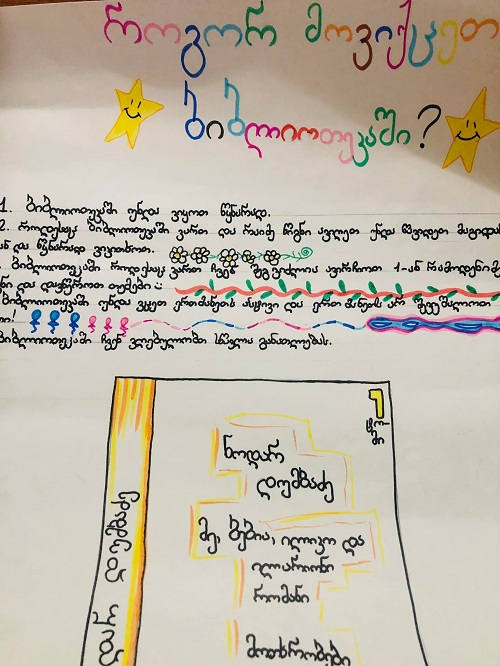 როგორ მოვიქცეთ
ბიბლიოთეკაში?
1. ბიბლიოთეკაში უნდა ვიყოთ წყნარად.
2. როდესაც ბიბლიოთეკაში ვართ და რაიმე წიგნი ავიღეთ უნდა წავიდეთ მაგიდა
ან და წყნარად ვიკითხოთ.
ბიბლიოთეკაში როდესაც ვართ ჩვენ შეგვიძლია ავირჩიოთ 1-ან რამოდენიმე
ნი და დავწეროთ თემები
ბიბლიოთეკაში უნდა ვცეთ ერთმანეთს პატივი და ერთმანეთს არ შევუშალოთ
ბიბლიოთეკაში ჩვენ ვღებულობთ სწავლა განათლებას.
1
ტო-
მი
ნოდარ
დუმბაძე
მე, ბებია, ილიკო და
ილარიონი
რომანი
მოთხრობები
დარ დუმბაძე